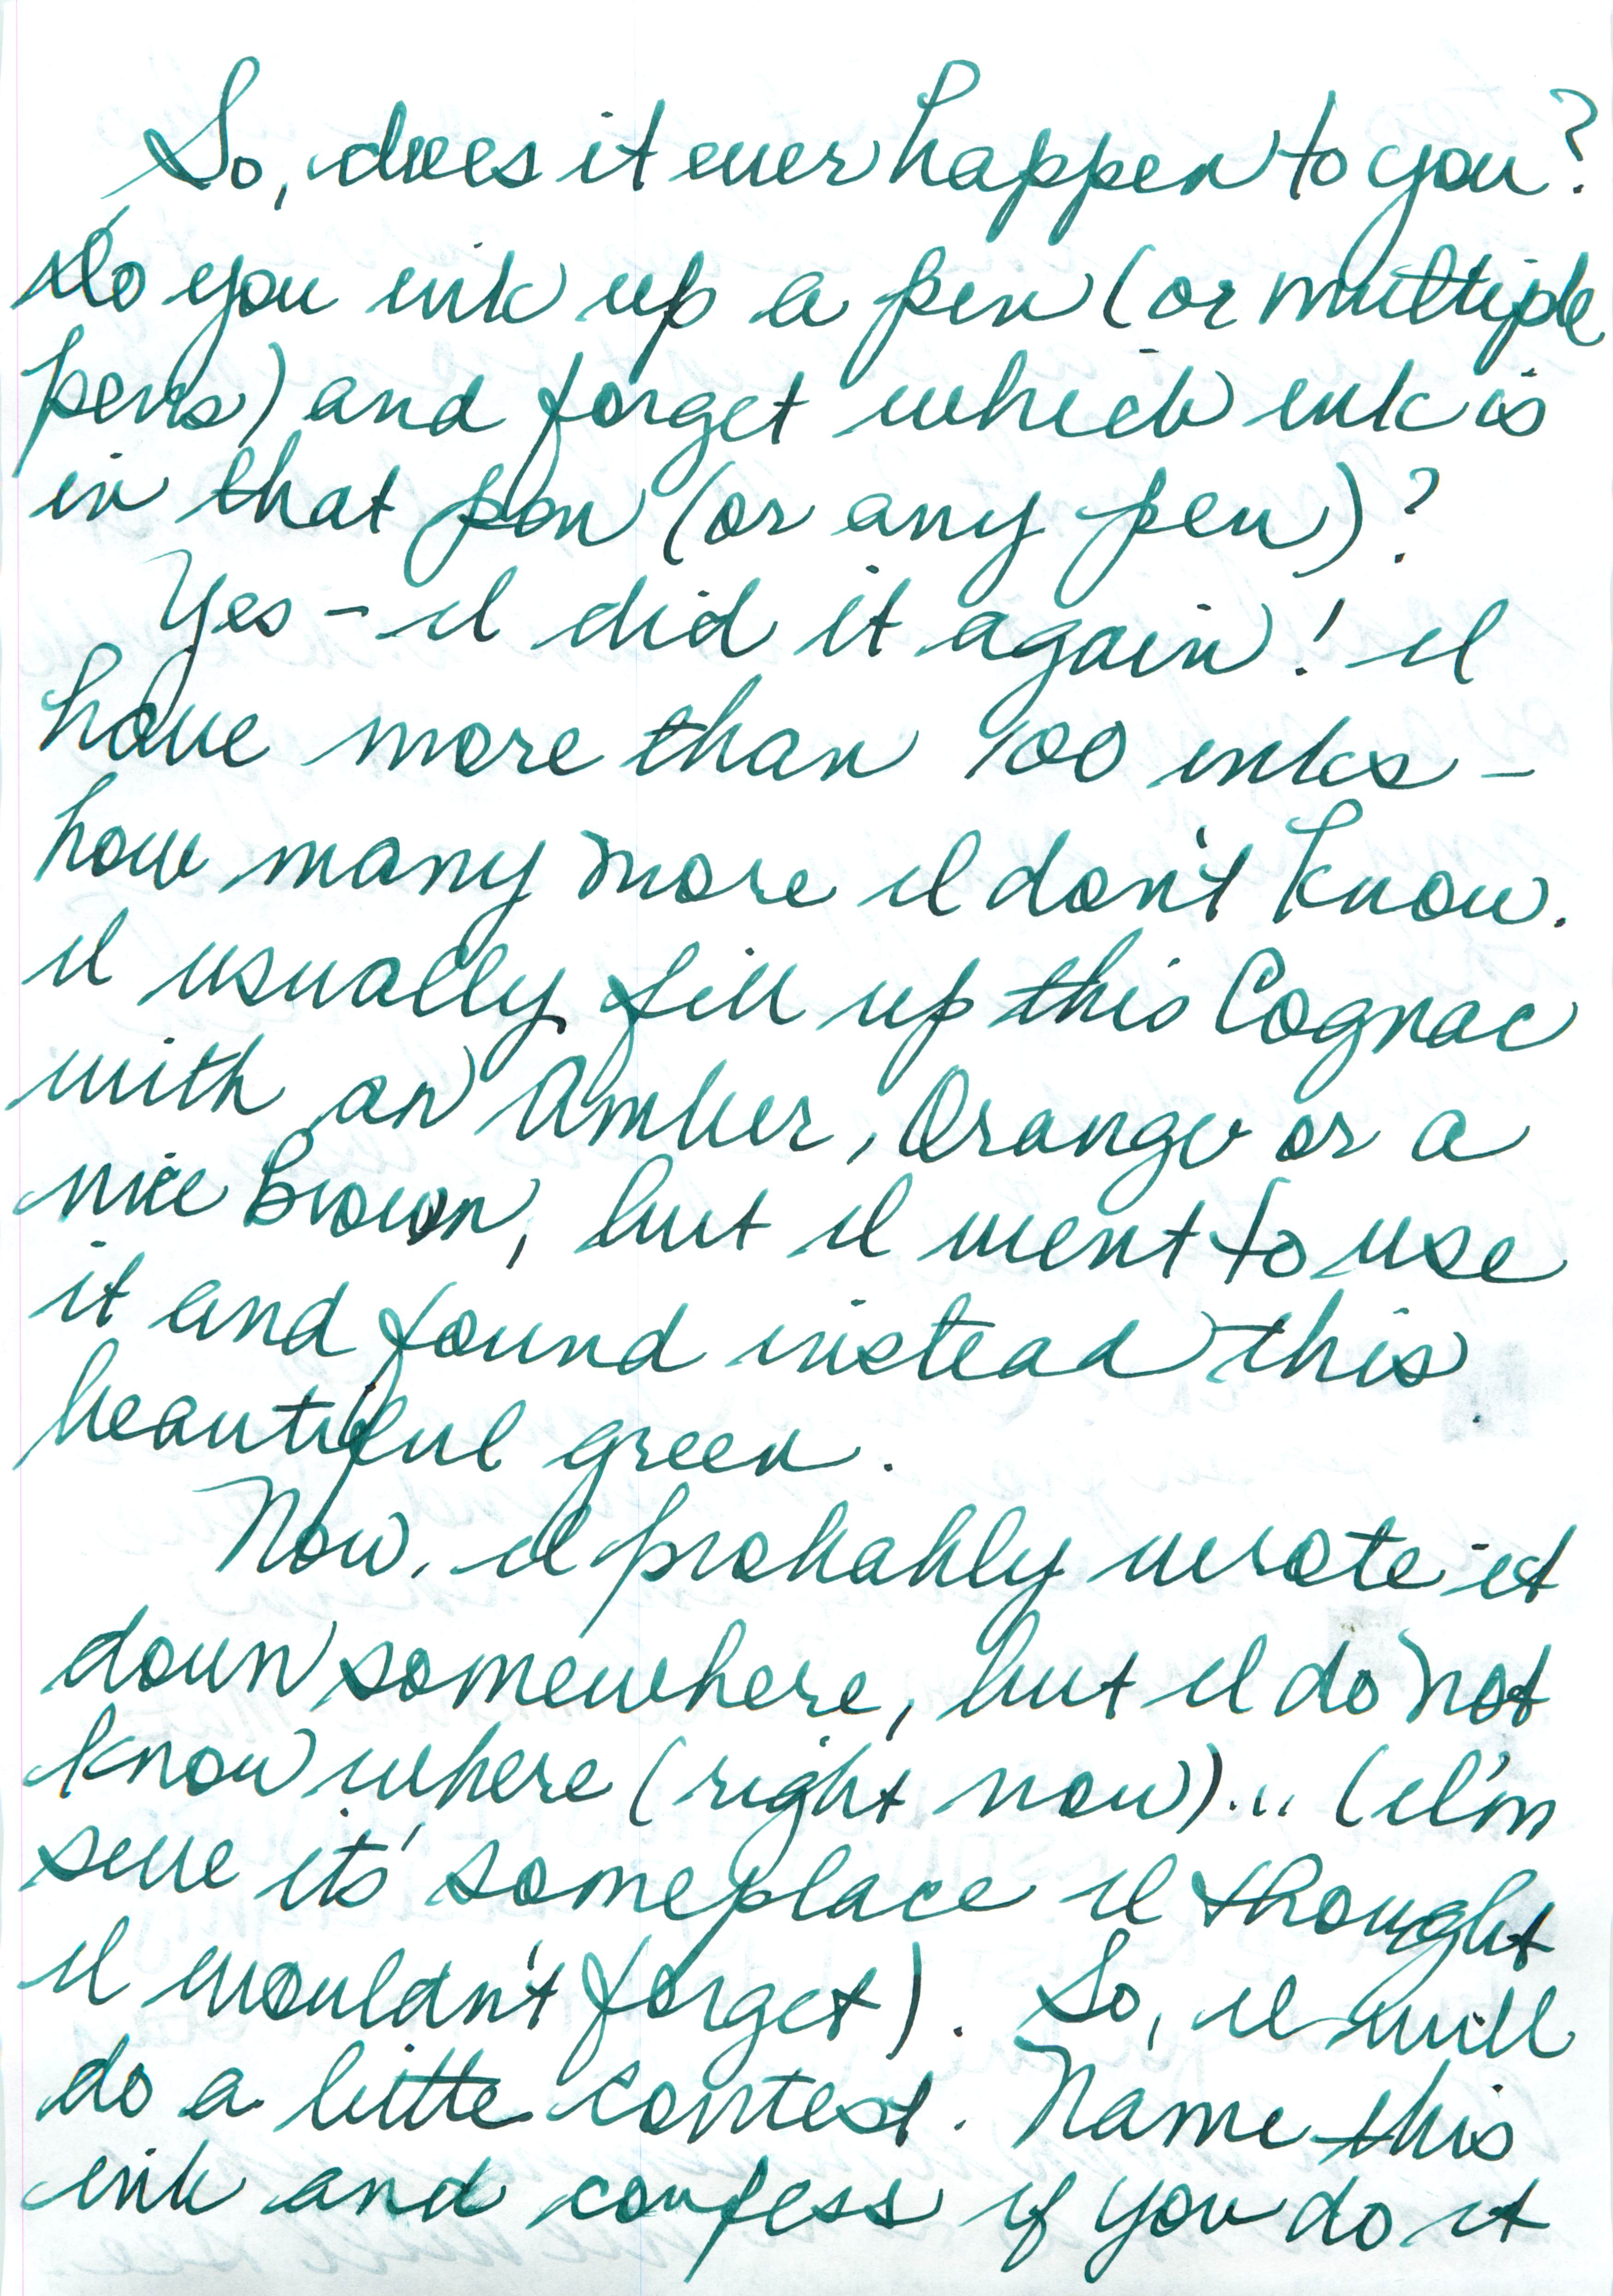 So, does it ever happen to you?
Do you ink up a pen (or multiple
pens) and forget which ink is
in that pen (or any pen)?
Yes - I did it again! I
have more than 100 inks -
how many more I don't know.
I usually fill up this Cognac
with an Amber, Orange or a
nice Brown, but I went to use
it and found instead this
beautiful green.
Now, I probably wrote it
down somewhere, but I do not
know where (right now)... (I'm
sure it's someplace I thought
I wouldn't forget). So, I will
do a little contest. Name this
ink and confess if you do it